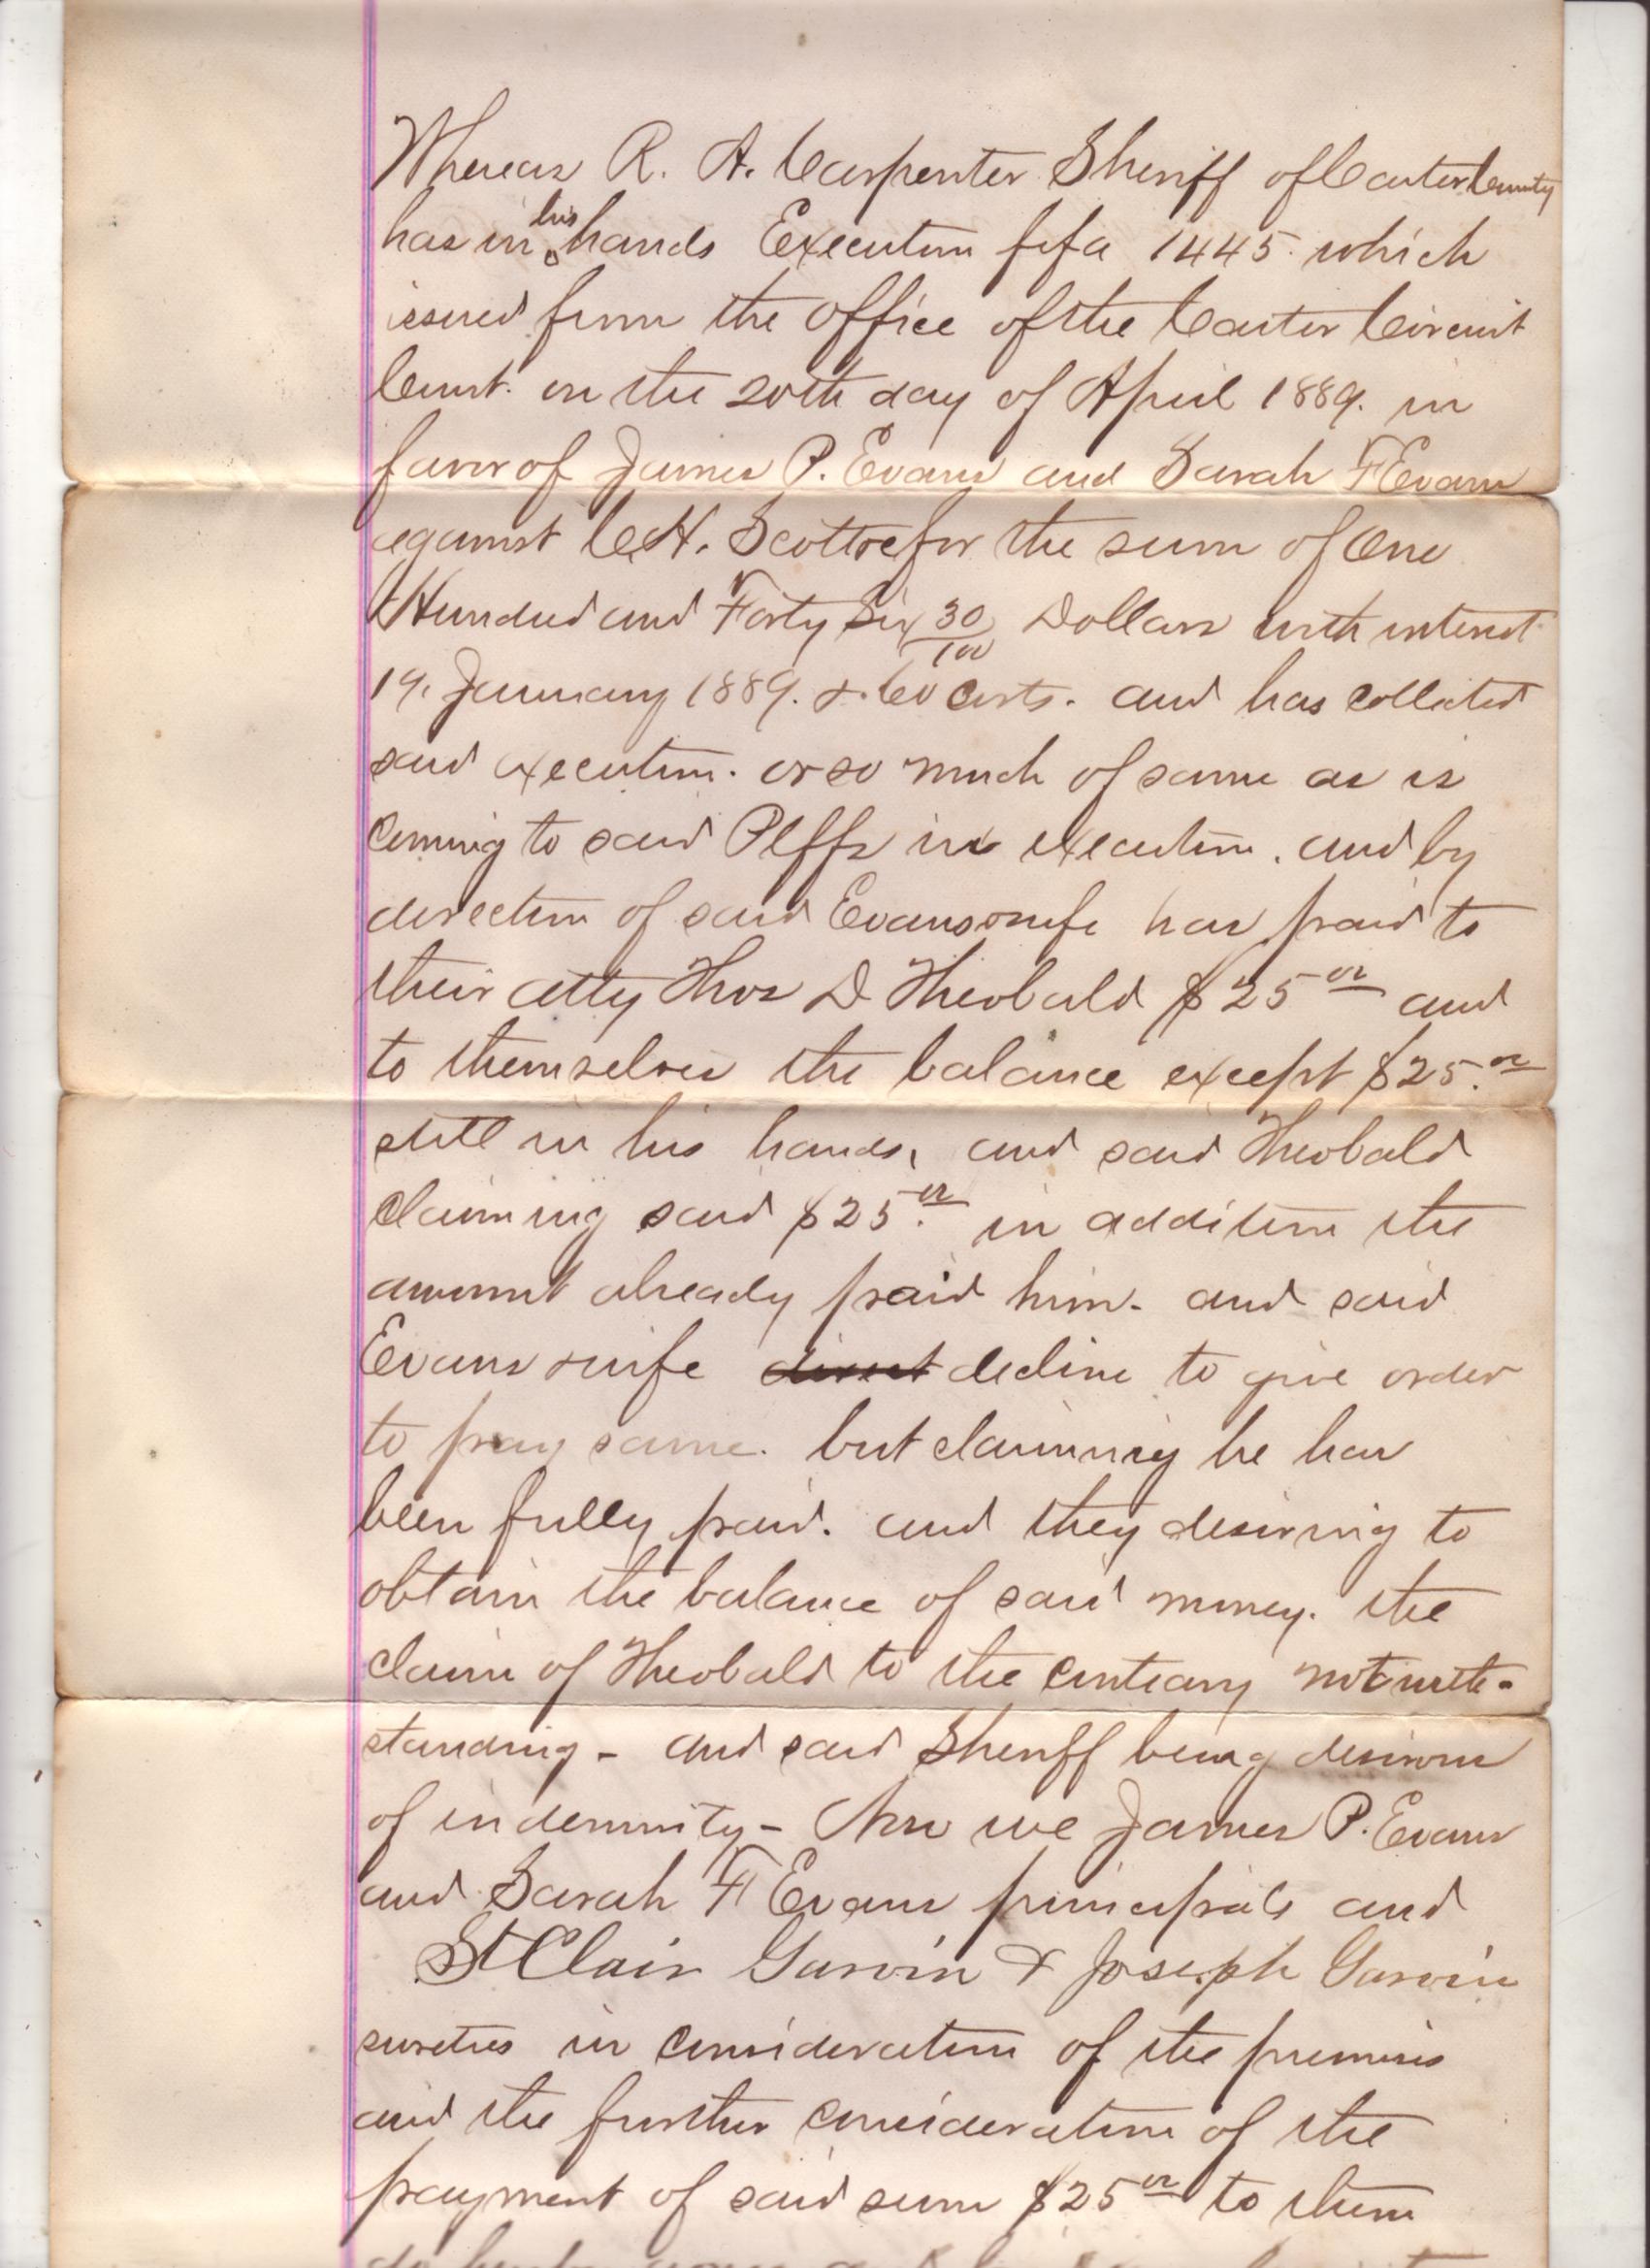 Whereas R. A. Carpenter Sheriff of Carter County
has in his hands Execution fifa 1445 which
issued from the office of the Carter Circuit
Court. on the 20th day of April 1889. in
favor of James P. Evans and Sarah F Evans
against C H. Scott for the sum of One
Hundred and Forty Six 30/100 Dollars with interest
19. January 1889. & 60 Costs. and has collected
said execution. or so much of same as is
coming to said Plffs in execution. and by
direction of said Evans & wife has paid to
their atty Thos D Theobald $25 00 and
to themselves the balance except $25.00
still in his hands, and said Theobald
claiming said $25.00 in addition the
amount already paid him. and said
Evans & wife direct decline to give order
to pay same. but claiming he has
been fully paid. and they desiring to
obtain the balance of said money. the
claim of Theobald to the contrary notwith-
standing - and said Sheriff being desirous
of indemnity - Now we James P. Evans
and Sarah F Evans principals and
St Clair Garvin & Joseph Garvin
sureties in consideration of the premises
and the further consideration of the
payment of said sum $25 00 to them